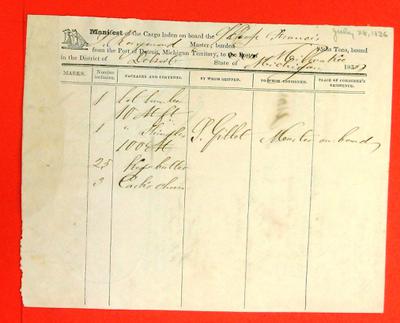 July 28, 1836
Manifest of the Cargo laden on board the Sloop Francis
Master; burden Tons, bound
from the Port of Detroit, Michigan Territory, to the Port of Milwaukie
in the District of Detroit State of Michigan 183
MARKS. Number inclusive. PACKAGES AND CONTENTS. BY WHOM SHIPPED. TO WHOM CONSIGNED. PLACE OF CONSIGNEE'S RESIDENCE.
1 Lot lumber
10 M ft
1 " Shingles S. Gillet Master on board
100 M
25 Kegs butter
3 Casks